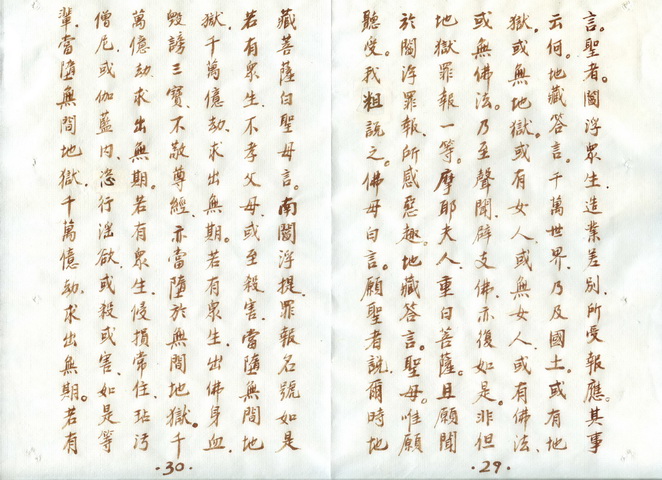 言。聖者。閻浮眾生。造業差別。所受報應。其事
云何。地藏答言。千萬世界。乃及國土。或有地
獄。或無地獄。或有女人。或無女人。或有佛法。
或無佛法。乃至聲聞。辟支佛。亦復如是。非但
地獄罪報一等。摩耶夫人。重白菩薩。且願聞
於閻浮罪報。所感惡趣。地藏答言。聖母。唯願
聽受。我粗說之。佛母白言。願聖者說。爾時地
·29·
藏菩薩白聖母言。南閻浮提。罪報名號如是。
若有眾生。不孝父母。或至殺害。當墮無間地
獄。千萬億劫。求出無期。若有眾生。出佛身血。
毀謗三寶。不敬尊經。亦當墮於無間地獄。千
萬億劫。求出無期。若有眾生。侵損常住。玷污
僧尼。或伽藍內。恣行淫欲。或殺或害。如是等
輩。當墮無間地獄。千萬億劫。求出無期。若有
·30·